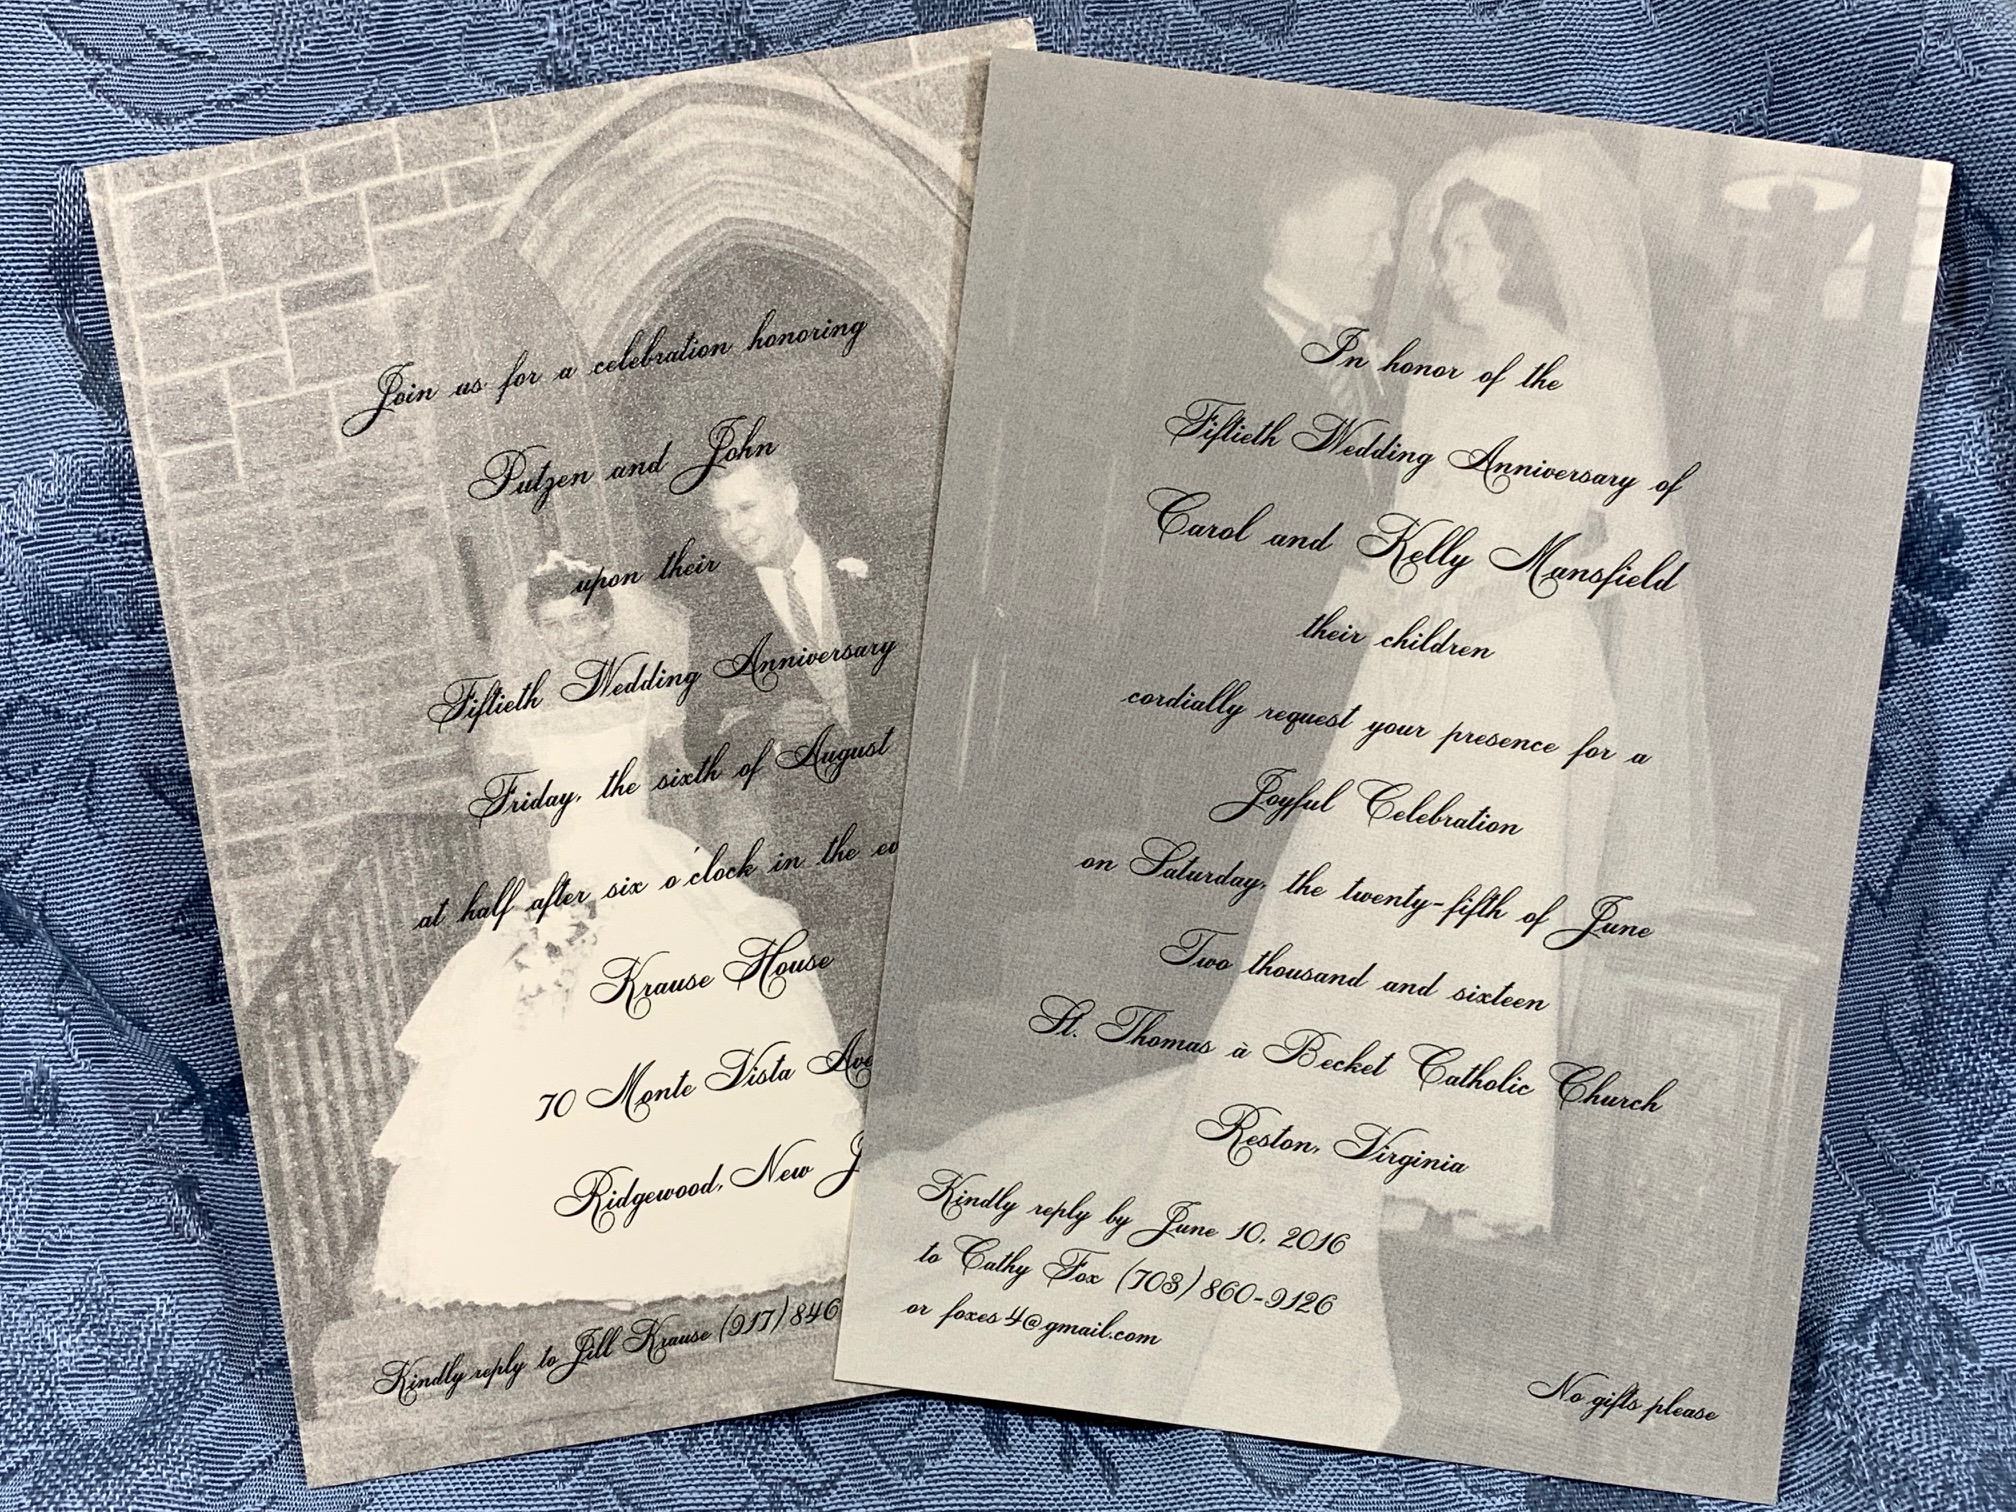 Join us for a celebration honoring
Putzen and John
upon their
Fiftieth Wedding Anniversary
Friday, the sixth of August
at half after six o'clock in the
Krause House
70 Monte Vista Ave
Ridgewood, New J
Kindly reply to Jill Krause (917) 846
In honor of the
Fiftieth Wedding Anniversary of
Carol and Kelly Mansfield
their children
cordially request your presence for a
Joyful Celebration
on Saturday, the twenty-fifth of June
Two thousand and sixteen
St. Thomas à Becket Catholic Church
Reston, Virginia
Kindly reply by June 10, 2016
to Cathy Fox (703) 860-9126
or foxes4@gmail.com
No gifts please